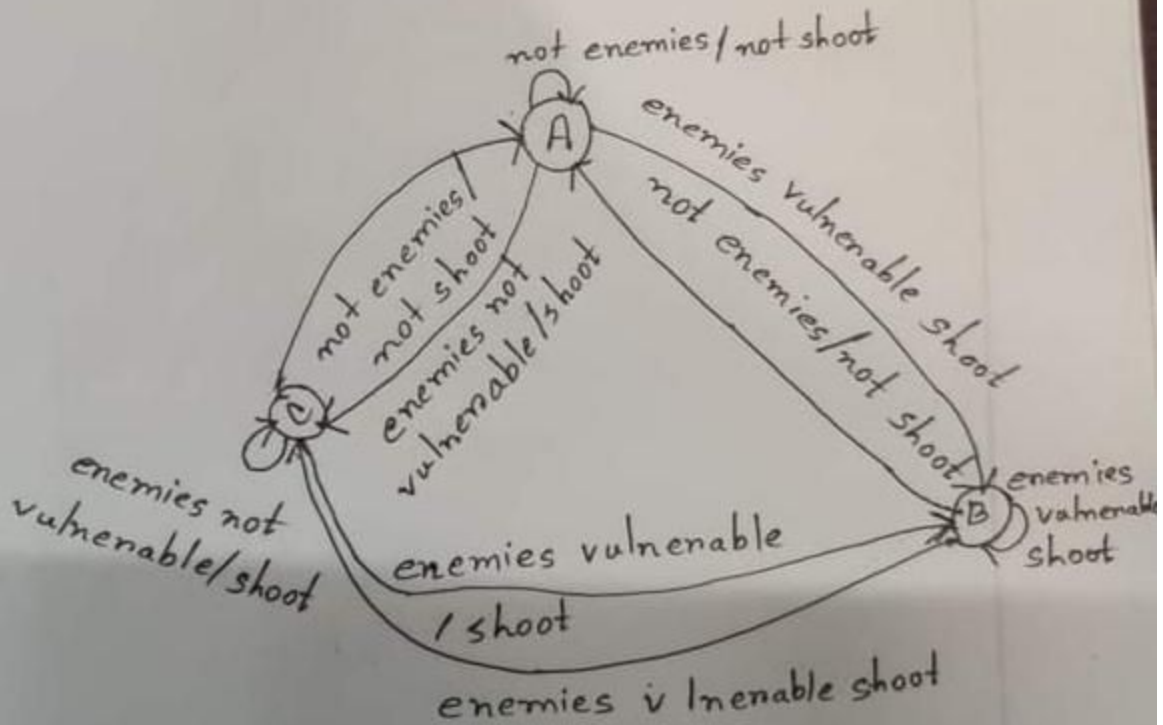 not enemies/not shoot
A
enemies vulnenable shoot
not enemies/not shoot
not enemies/
not shoot
enemies not
vulnenable/shoot
C
B
enemies
valnenable
shoot
enemies not
vulnenable/shoot
enemies vulnenable
/ shoot
enemies v lnenable shoot